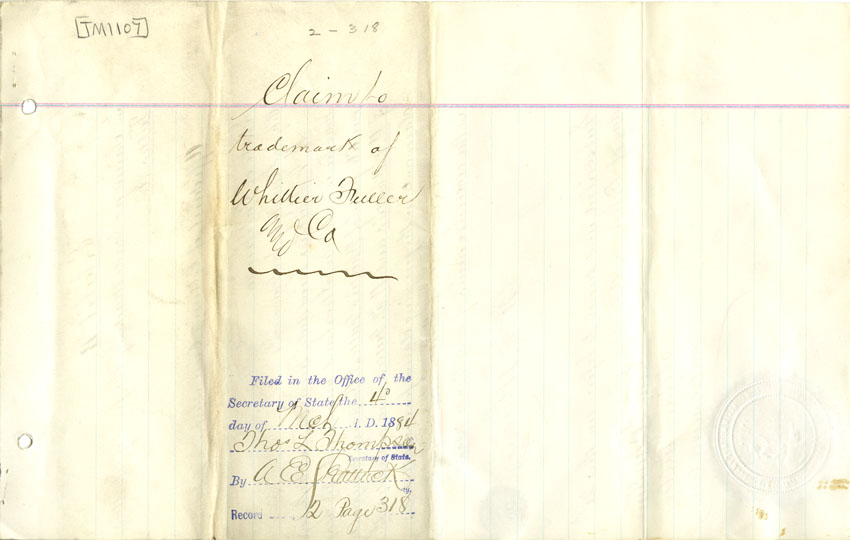 [TM1107]
2 - 318
Claim to
trademark of
Whittier Fuller
and Co
Filed in the Office of the
Secretary of State the 4th
day of Mch A. D. 1884
Thos L Thompson
Secretary of State.
By A E
Record 2 Page 318